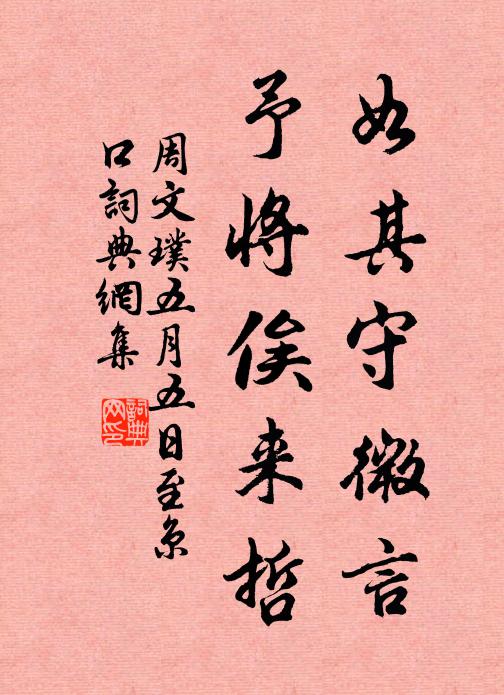 如其守微言
予將俟来哲
周文璞五月五日至京
口詞典網集
詞典网印